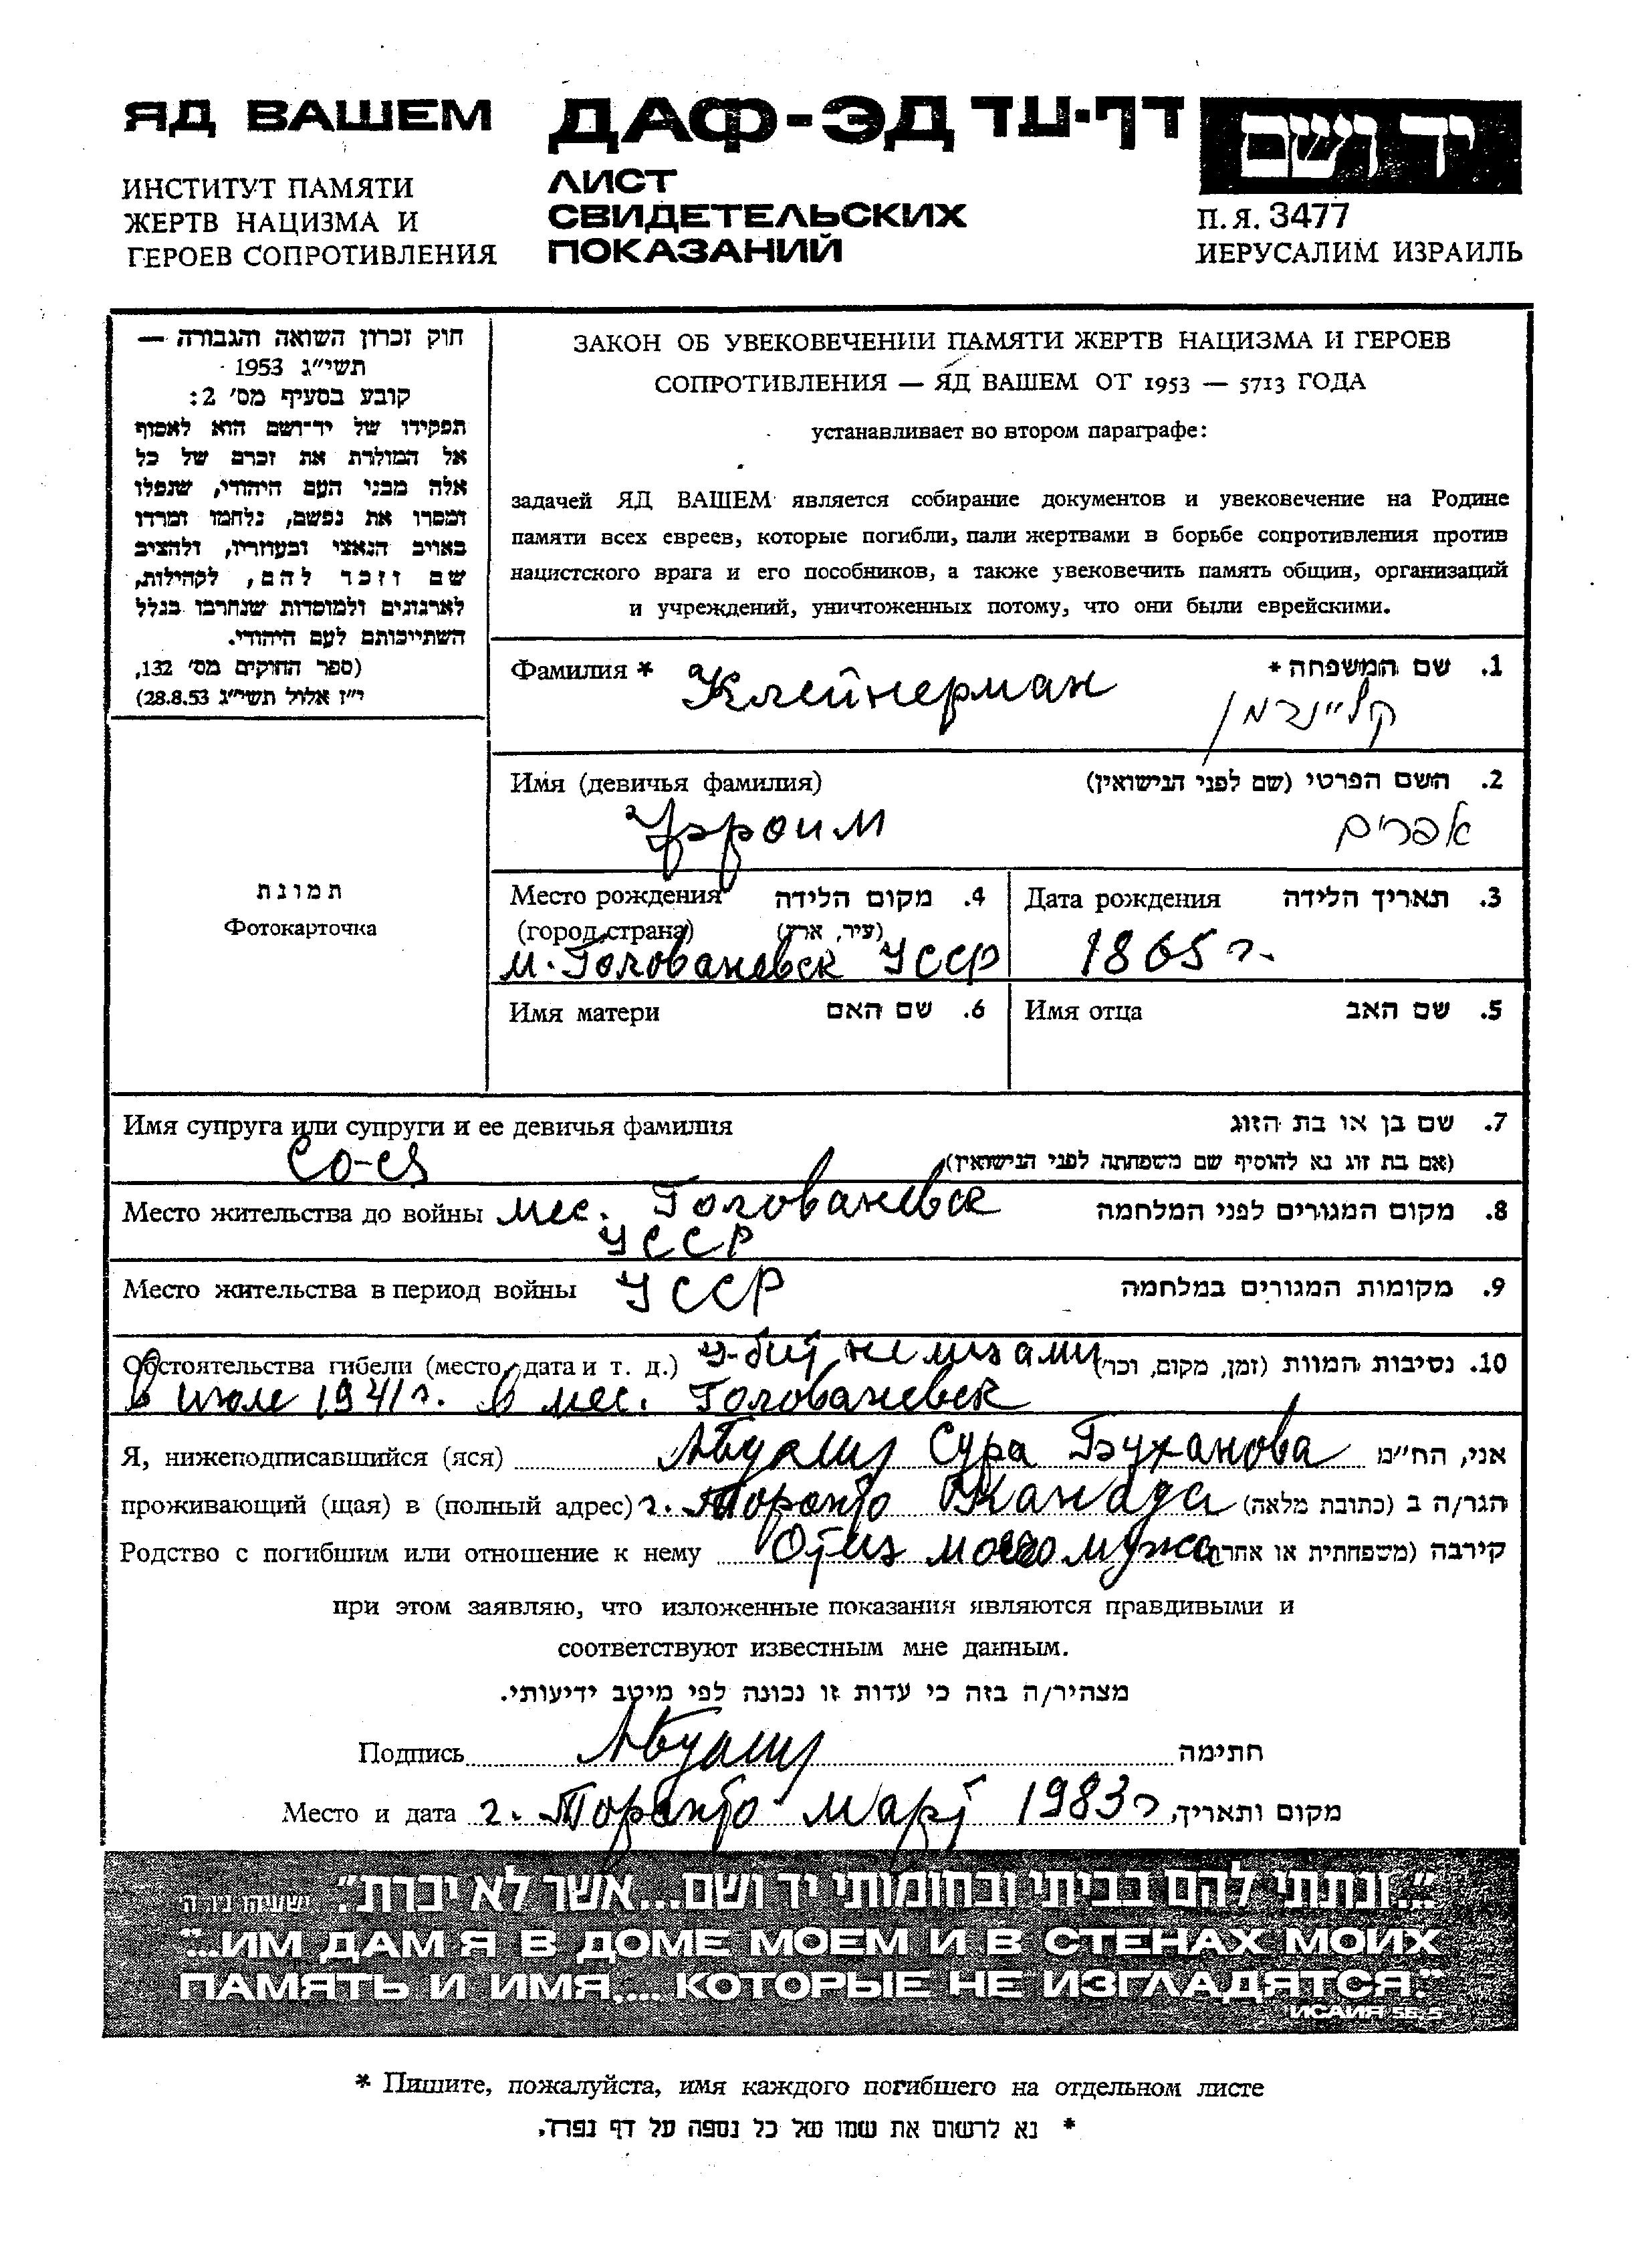 ЯД ВАШЕМ
ИНСТИТУТ ПАМЯТИ
ЖЕРТВ НАЦИЗМА И
ГЕРОЕВ СОПРОТИВЛЕНИЯ
ДАФ-ЭД דף-עד
ЛИСТ
СВИДЕТЕЛЬСКИХ
ПОКАЗАНИЙ
יד ושם
П.Я. 3477
ИЕРУСАЛИМ ИЗРАИЛЬ
חוק זכרון השואה והגבורה —
תשי״ג 1953
קובע בסעיף מס׳ 2:
תפקידו של יד־ושם הוא לאסוף
אל המולדת את זכרם של כל
אלה מבני העם היהודי, שנפלו
ומסרו את נפשם, נלחמו ומרדו
באויב הנאצי ובעוזריו, ולהציב
שם וזכר להם, לקהילות,
לארגונים ולמוסדות שנחרבו בגלל
השתייכותם לעם היהודי.
(ספר החוקים מס׳ 132,
י״ז אלול תשי״ג 28.8.53)
ЗАКОН ОБ УВЕКОВЕЧЕНИИ ПАМЯТИ ЖЕРТВ НАЦИЗМА И ГЕРОЕВ
СОПРОТИВЛЕНИЯ — ЯД ВАШЕМ ОТ 1953 — 5713 ГОДА
устанавливает во втором параграфе:
задачей ЯД ВАШЕМ является собирание документов и увековечение на Родине
памяти всех евреев, которые погибли, пали жертвами в борьбе сопротивления против
нацистского врага и его пособников, а также увековечить память общин, организаций
и учреждений, уничтоженных потому, что они были еврейскими.
Фамилия * Клейнерман 1. שם המשפחה *
קליינרמן
Имя (девичья фамилия) 2. השם הפרטי (שם לפני הנישואין)
Уфроим אפרים
תמונת
Фотокарточка
Место рождения 4. מקום הלידה
(город, страна) (עיר, ארץ)
м. Голованевск УССР
Дата рождения 3. תאריך הלידה
1865 г.
Имя матери 6. שם האם
Имя отца 5. שם האב
Имя супруга или супруги и ее девичья фамилия 7. שם בן או בת הזוג
Со-ся (אם בת זוג נא להוסיף שם משפחתה לפני הנישואין)
Место жительства до войны мес. Голованевск 8. מקום המגורים לפני המלחמה
УССР
Место жительства в период войны УССР 9. מקומות המגורים במלחמה
Обстоятельства гибели (место, дата и т. д.) у-бит немцами 10. נסיבות המוות (זמן, מקום, וכו׳)
в июле 1941 г. в мес. Голованевск
Я, нижеподписавшийся (яся) Сура Бухановa אני, הח״מ
проживающий (щая) в (полный адрес) г. Торонто Канада הגר/ה ב (כתובת מלאה)
Родство с погибшим или отношение к нему Отец моего мужа קירבה (משפחתית או אחרת)
при этом заявляю, что изложенные показания являются правдивыми и
соответствуют известным мне данным.
מצהיר/ה בזה כי עדות זו נכונה לפי מיטב ידיעותי.
Подпись חתימה
Место и дата г. Торонто март 1983 г מקום ותאריך,
״...ונתתי להם בביתי ובחומותי יד ושם...אשר לא יכרת״. ישעיהו נ״ו ה׳
"...ИМ ДАМ Я В ДОМЕ МОЕМ И В СТЕНАХ МОИХ
ПАМЯТЬ И ИМЯ.... КОТОРЫЕ НЕ ИЗГЛАДЯТСЯ."
ИСАИЯ 56-5
* Пишите, пожалуйста, имя каждого погибшего на отдельном листе
* נא לרשום את שמו של כל נספה על דף נפרד.